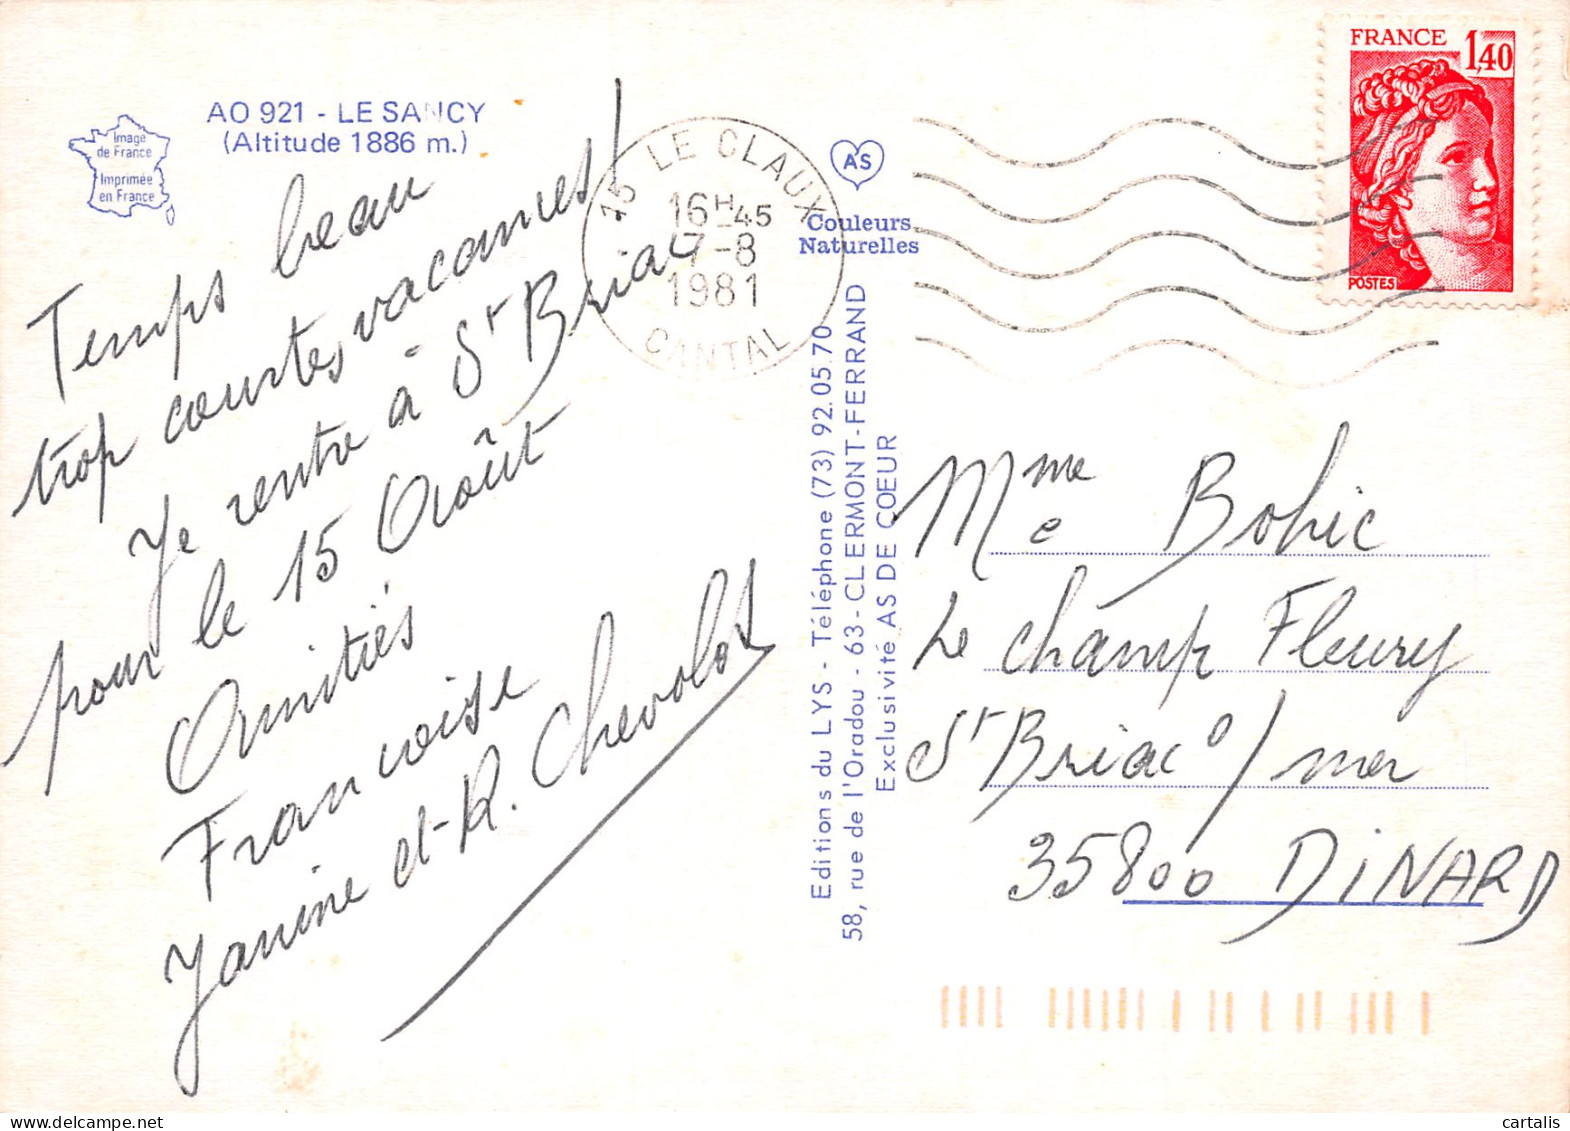 AO 921 - LE SANCY
(Altitude 1886 m.)
Image
de France
Imprimée
en France
Temps beau
trop courtes vacances!
Je rentre à St Briac
pour le 15 Août
Amitiés
Françoise
Janine et R. Chevolot
15 LE CLAUX
16H45
7-8
1981
CANTAL
AS
Couleurs
Naturelles
Editions du LYS - Téléphone (73) 92.05.70
58, rue de l'Oradou - 63 - CLERMONT-FERRAND
Exclusivité AS DE COEUR
FRANCE 1,40
POSTES
Mme Bohic
Le champ Fleury
St Briac s/mer
35800 DINARD
www.delcampe.net
cartalis